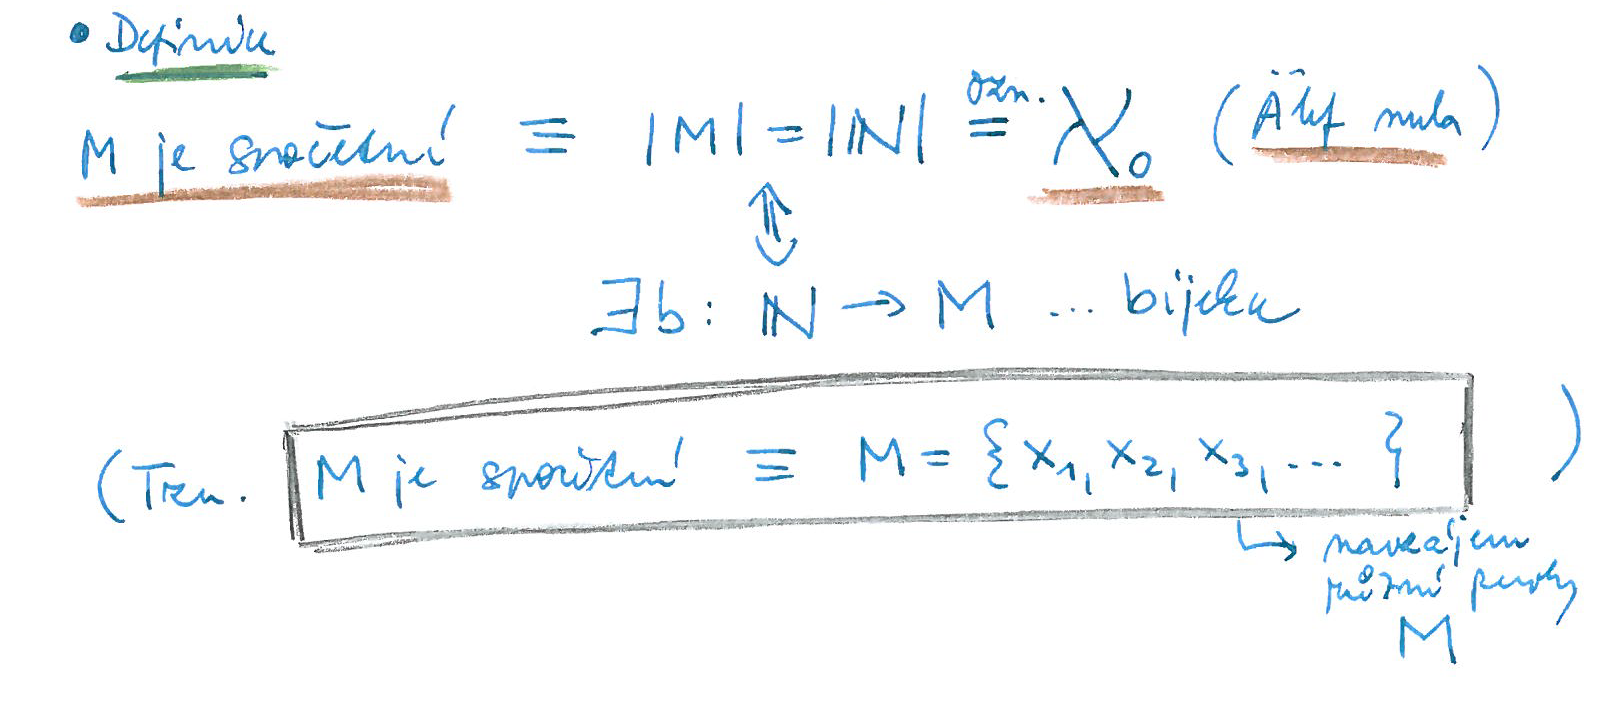 • Definice
M je spočetná ≡ |M| = |ℕ| ozn. ≡ ℵ₀ (Alef nula)
⇕
∃b: ℕ → M ... bijekce
(Tzn. M je spočetná ≡ M = {x₁, x₂, x₃, ... })
↳ navzájem
různé prvky
M